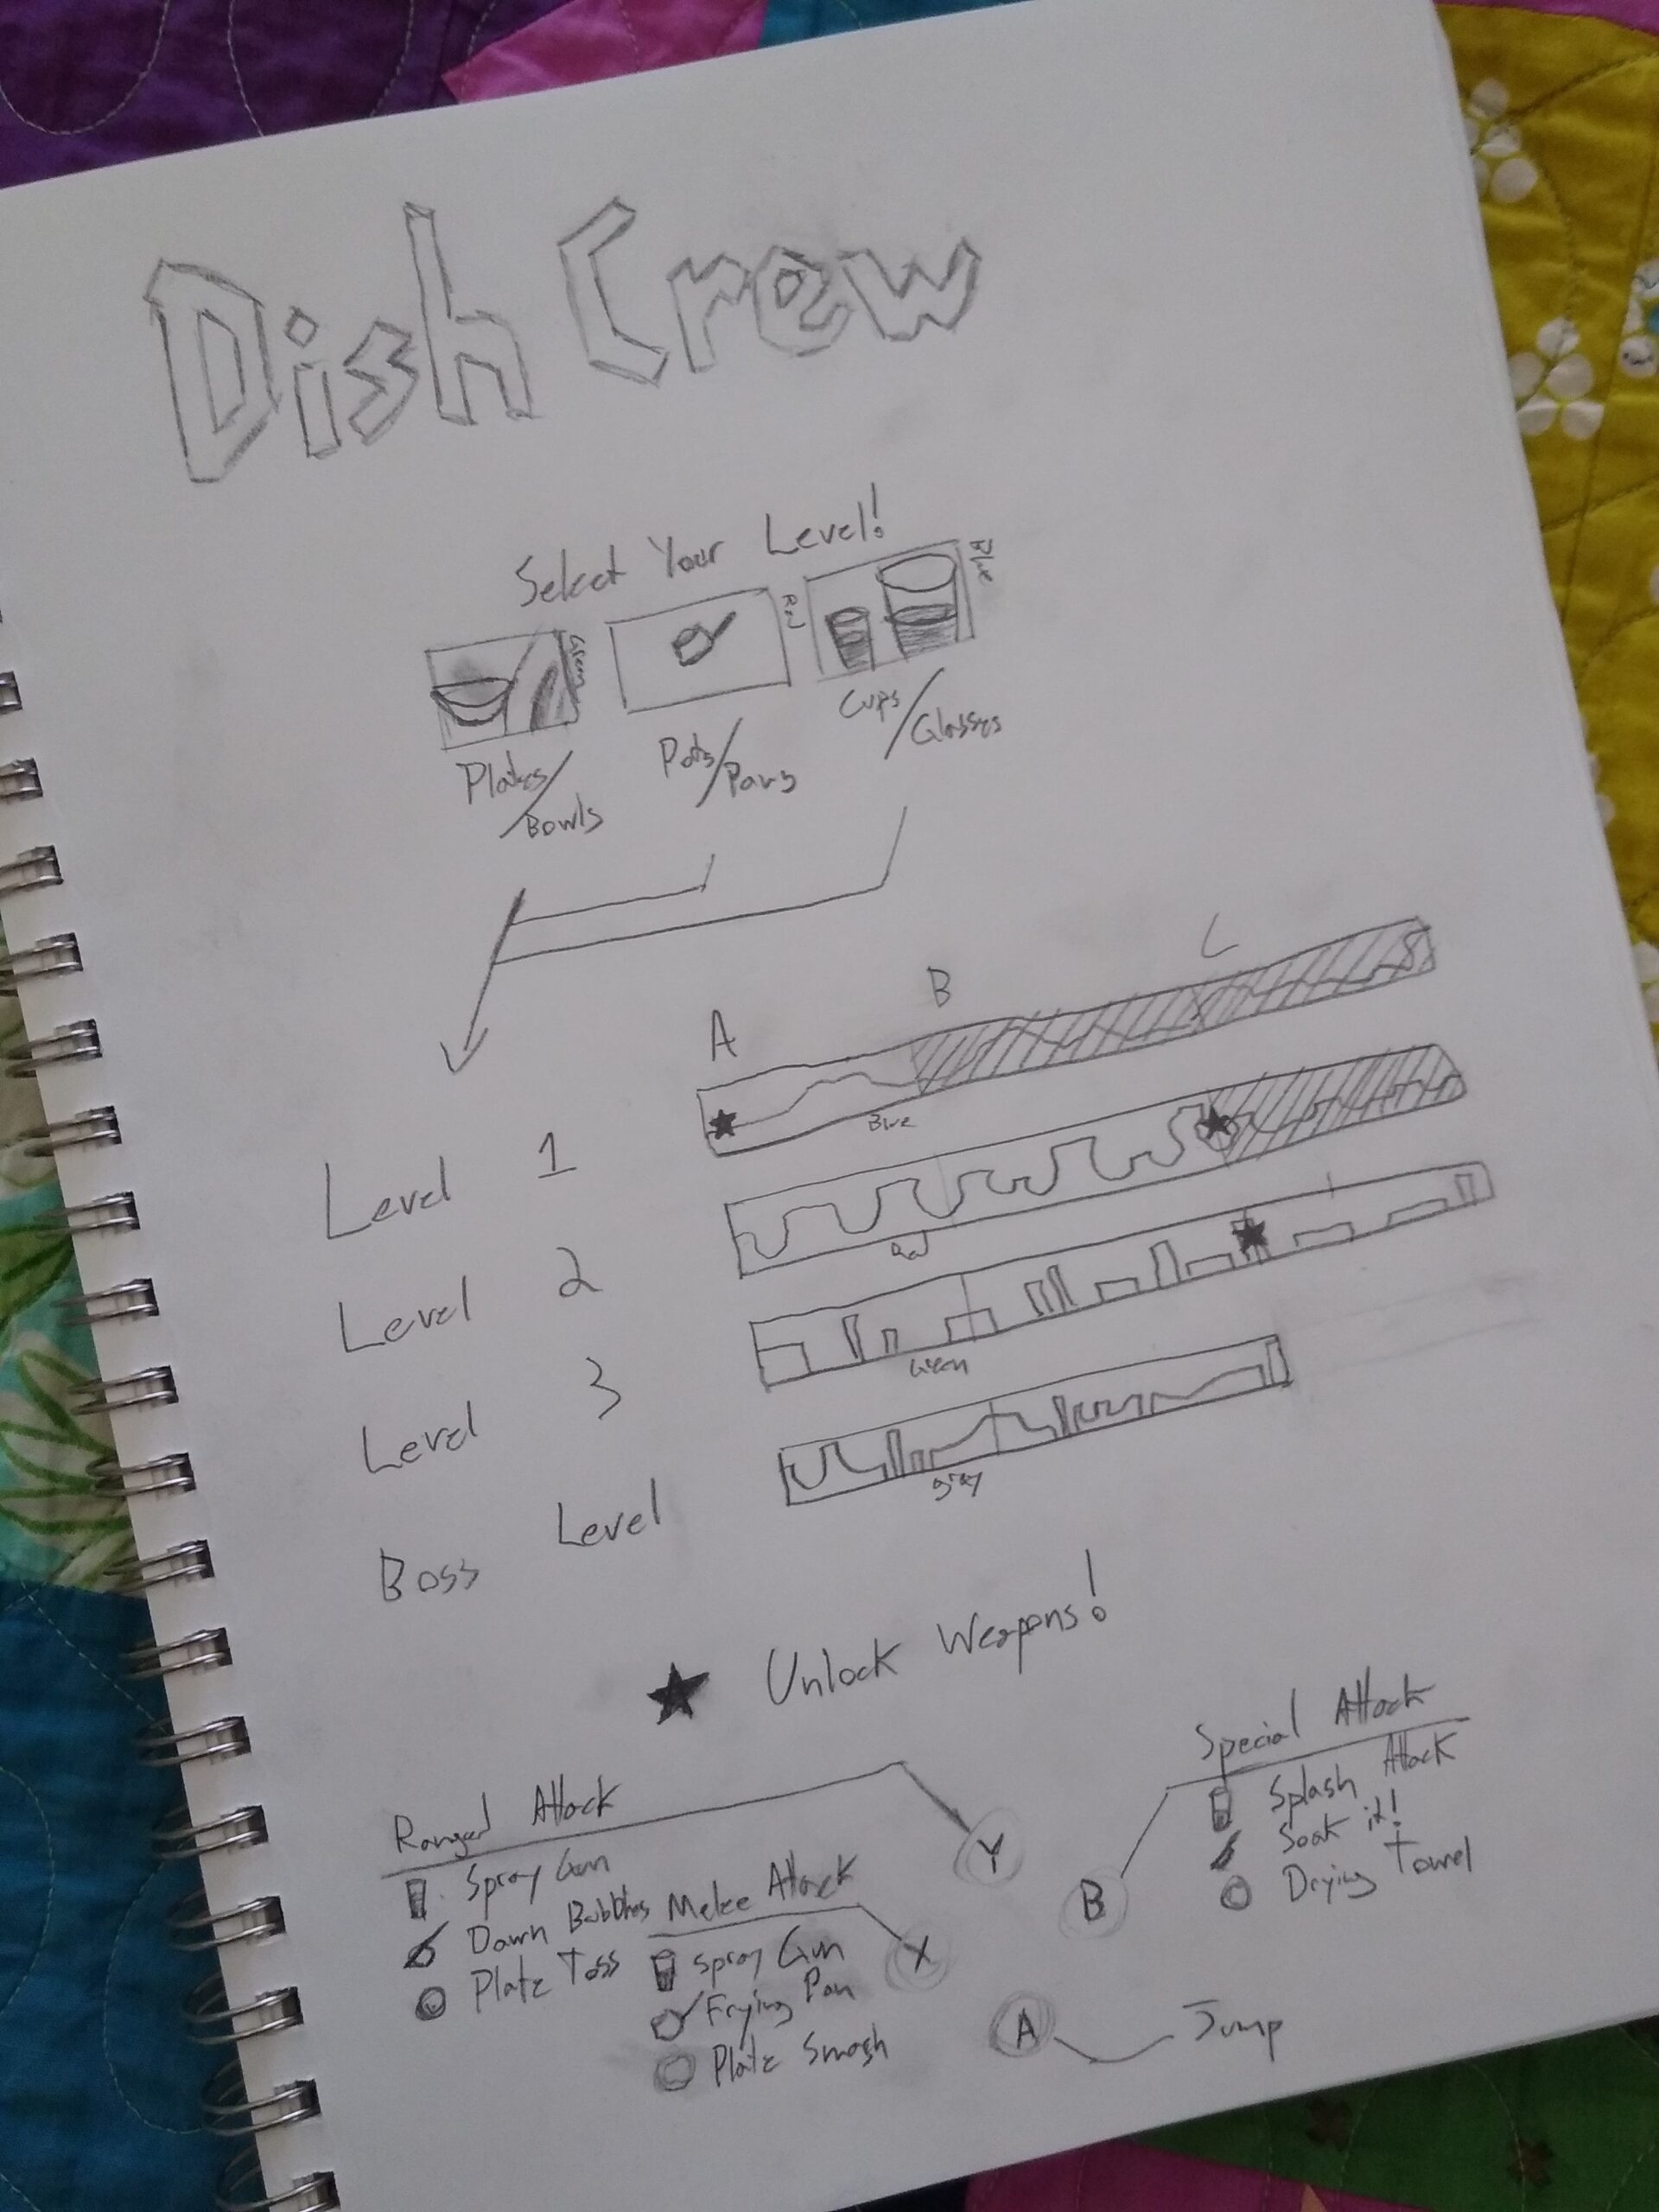 Dish Crew
Select Your Level!
Green
Red
Blue
Plates/Bowls
Pots/Pans
Cups/Glasses
A B C
Level 1
Blue
Level 2
Red
Level 3
Green
Boss Level
Gray
Unlock Weapons!
Ranged Attack
Spray Gun
Dawn Bubbles
Plate Toss
Melee Attack
Spray Gun
Frying Pan
Plate Smash
Y
X
B
A
Special Attack
Splash Attack
Soak it!
Drying Towel
Jump